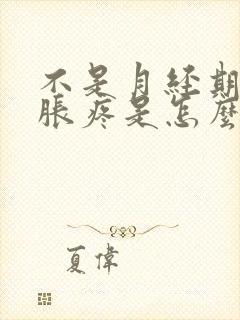 不是月经期
脹疼是怎麼
夏偉